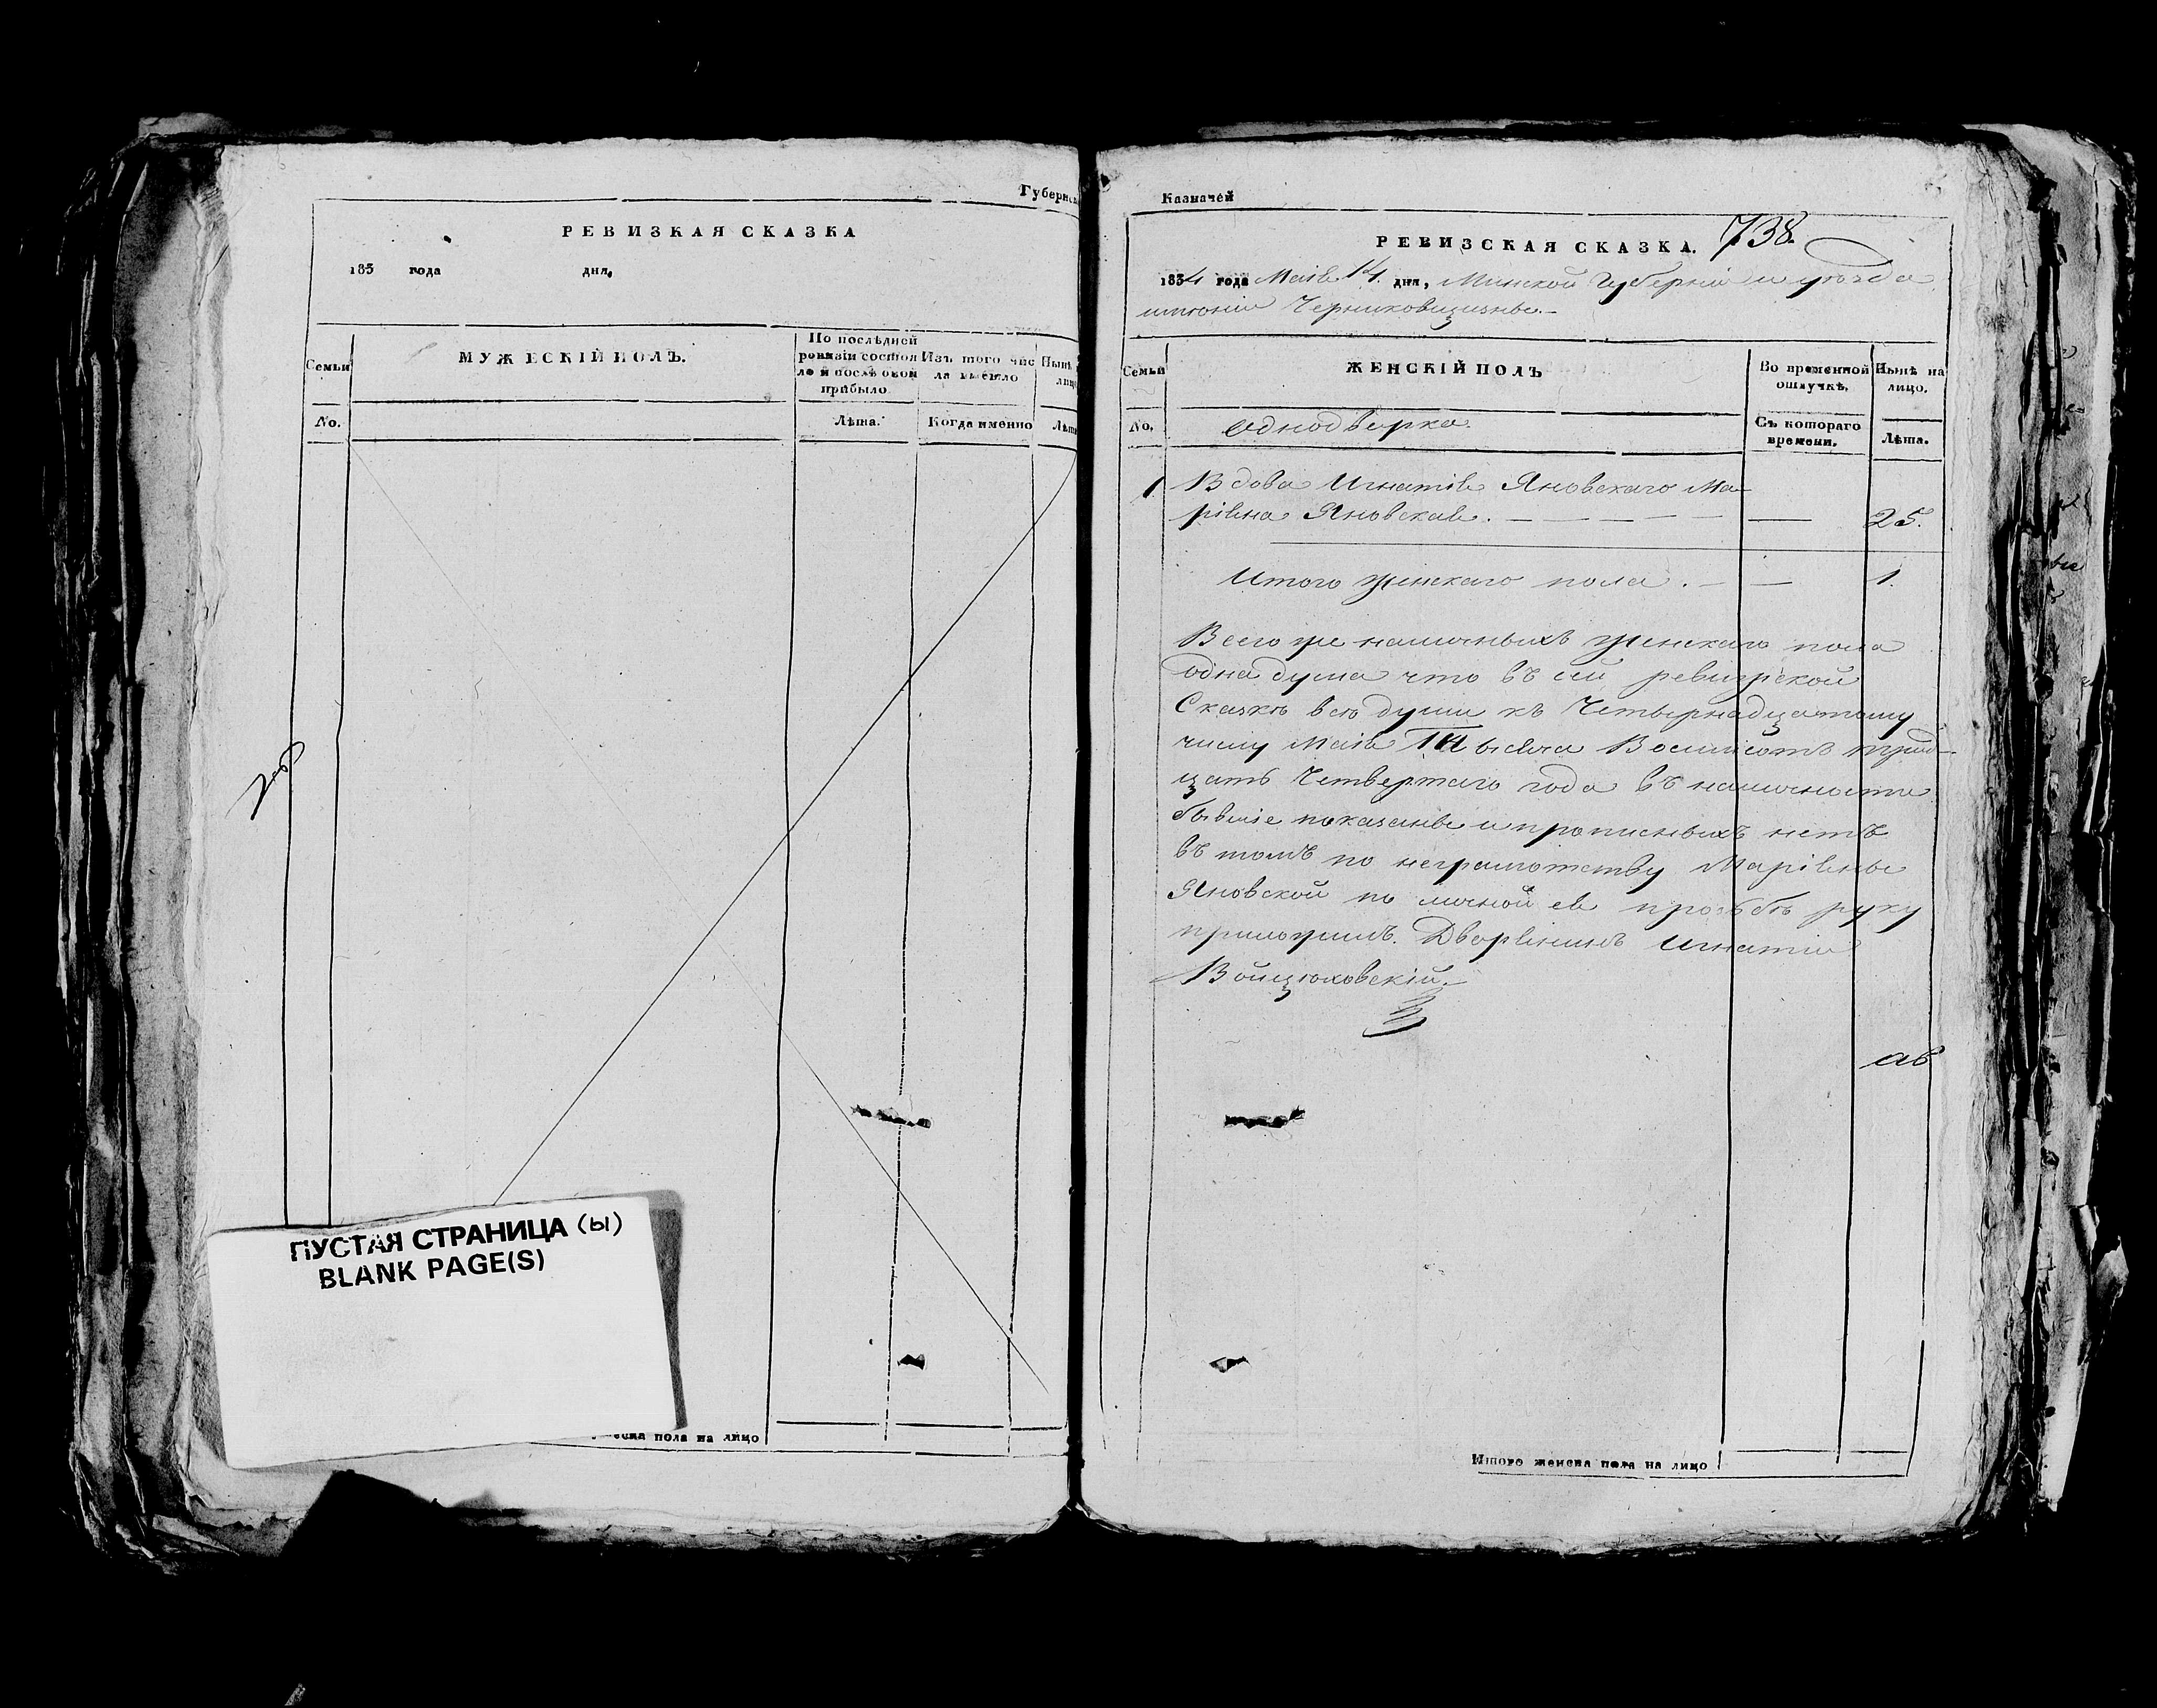 Губернск
РЕВИЗКАЯ СКАЗКА
183 года дня,
Семьи
МУЖЕСКІЙ ПОЛЪ.
По послѣдней ревизіи состояло и послѣ оной прибыло
Изъ того числа выбыло
Нынѣ лицо
No.
Лѣта.
Когда именно
Лѣта
ПУСТАЯ СТРАНИЦА (ы)
BLANK PAGE(S)
еска пола на лицо
Казначей
РЕВИЗСКАЯ СКАЗКА. 738.
1834 года Маія 14. дня, Минской Губерніи и уѣзда
имѣніи Черниковщизнѣ.
Семьи
ЖЕНСКІЙ ПОЛЪ
Во временной отлучкѣ.
Нынѣ на лицо.
No.
Однодворка.
Съ котораго времени.
Лѣта.
1 Вдова Игнатія Яновскаго Ма-
ріяна Яновская. — — — — — — 25.
Итого женскаго пола. — — 1.
Всего же наличныхъ женскаго пола
одна душа что въ сей ревизской
Сказкѣ всѣ души къ Четырнадцатому
числу Маія 14 тысяча Восмисотъ трид-
цать Четвертаго года въ наличности
бывшіе показаны и прописныхъ нетъ
въ томъ по неграмотству Маріяны
Яновской по личной ея прозьбѣ руку
приложилъ. Дворянинъ Игнатій
Войцюховскій.
Итого женска пола на лицо